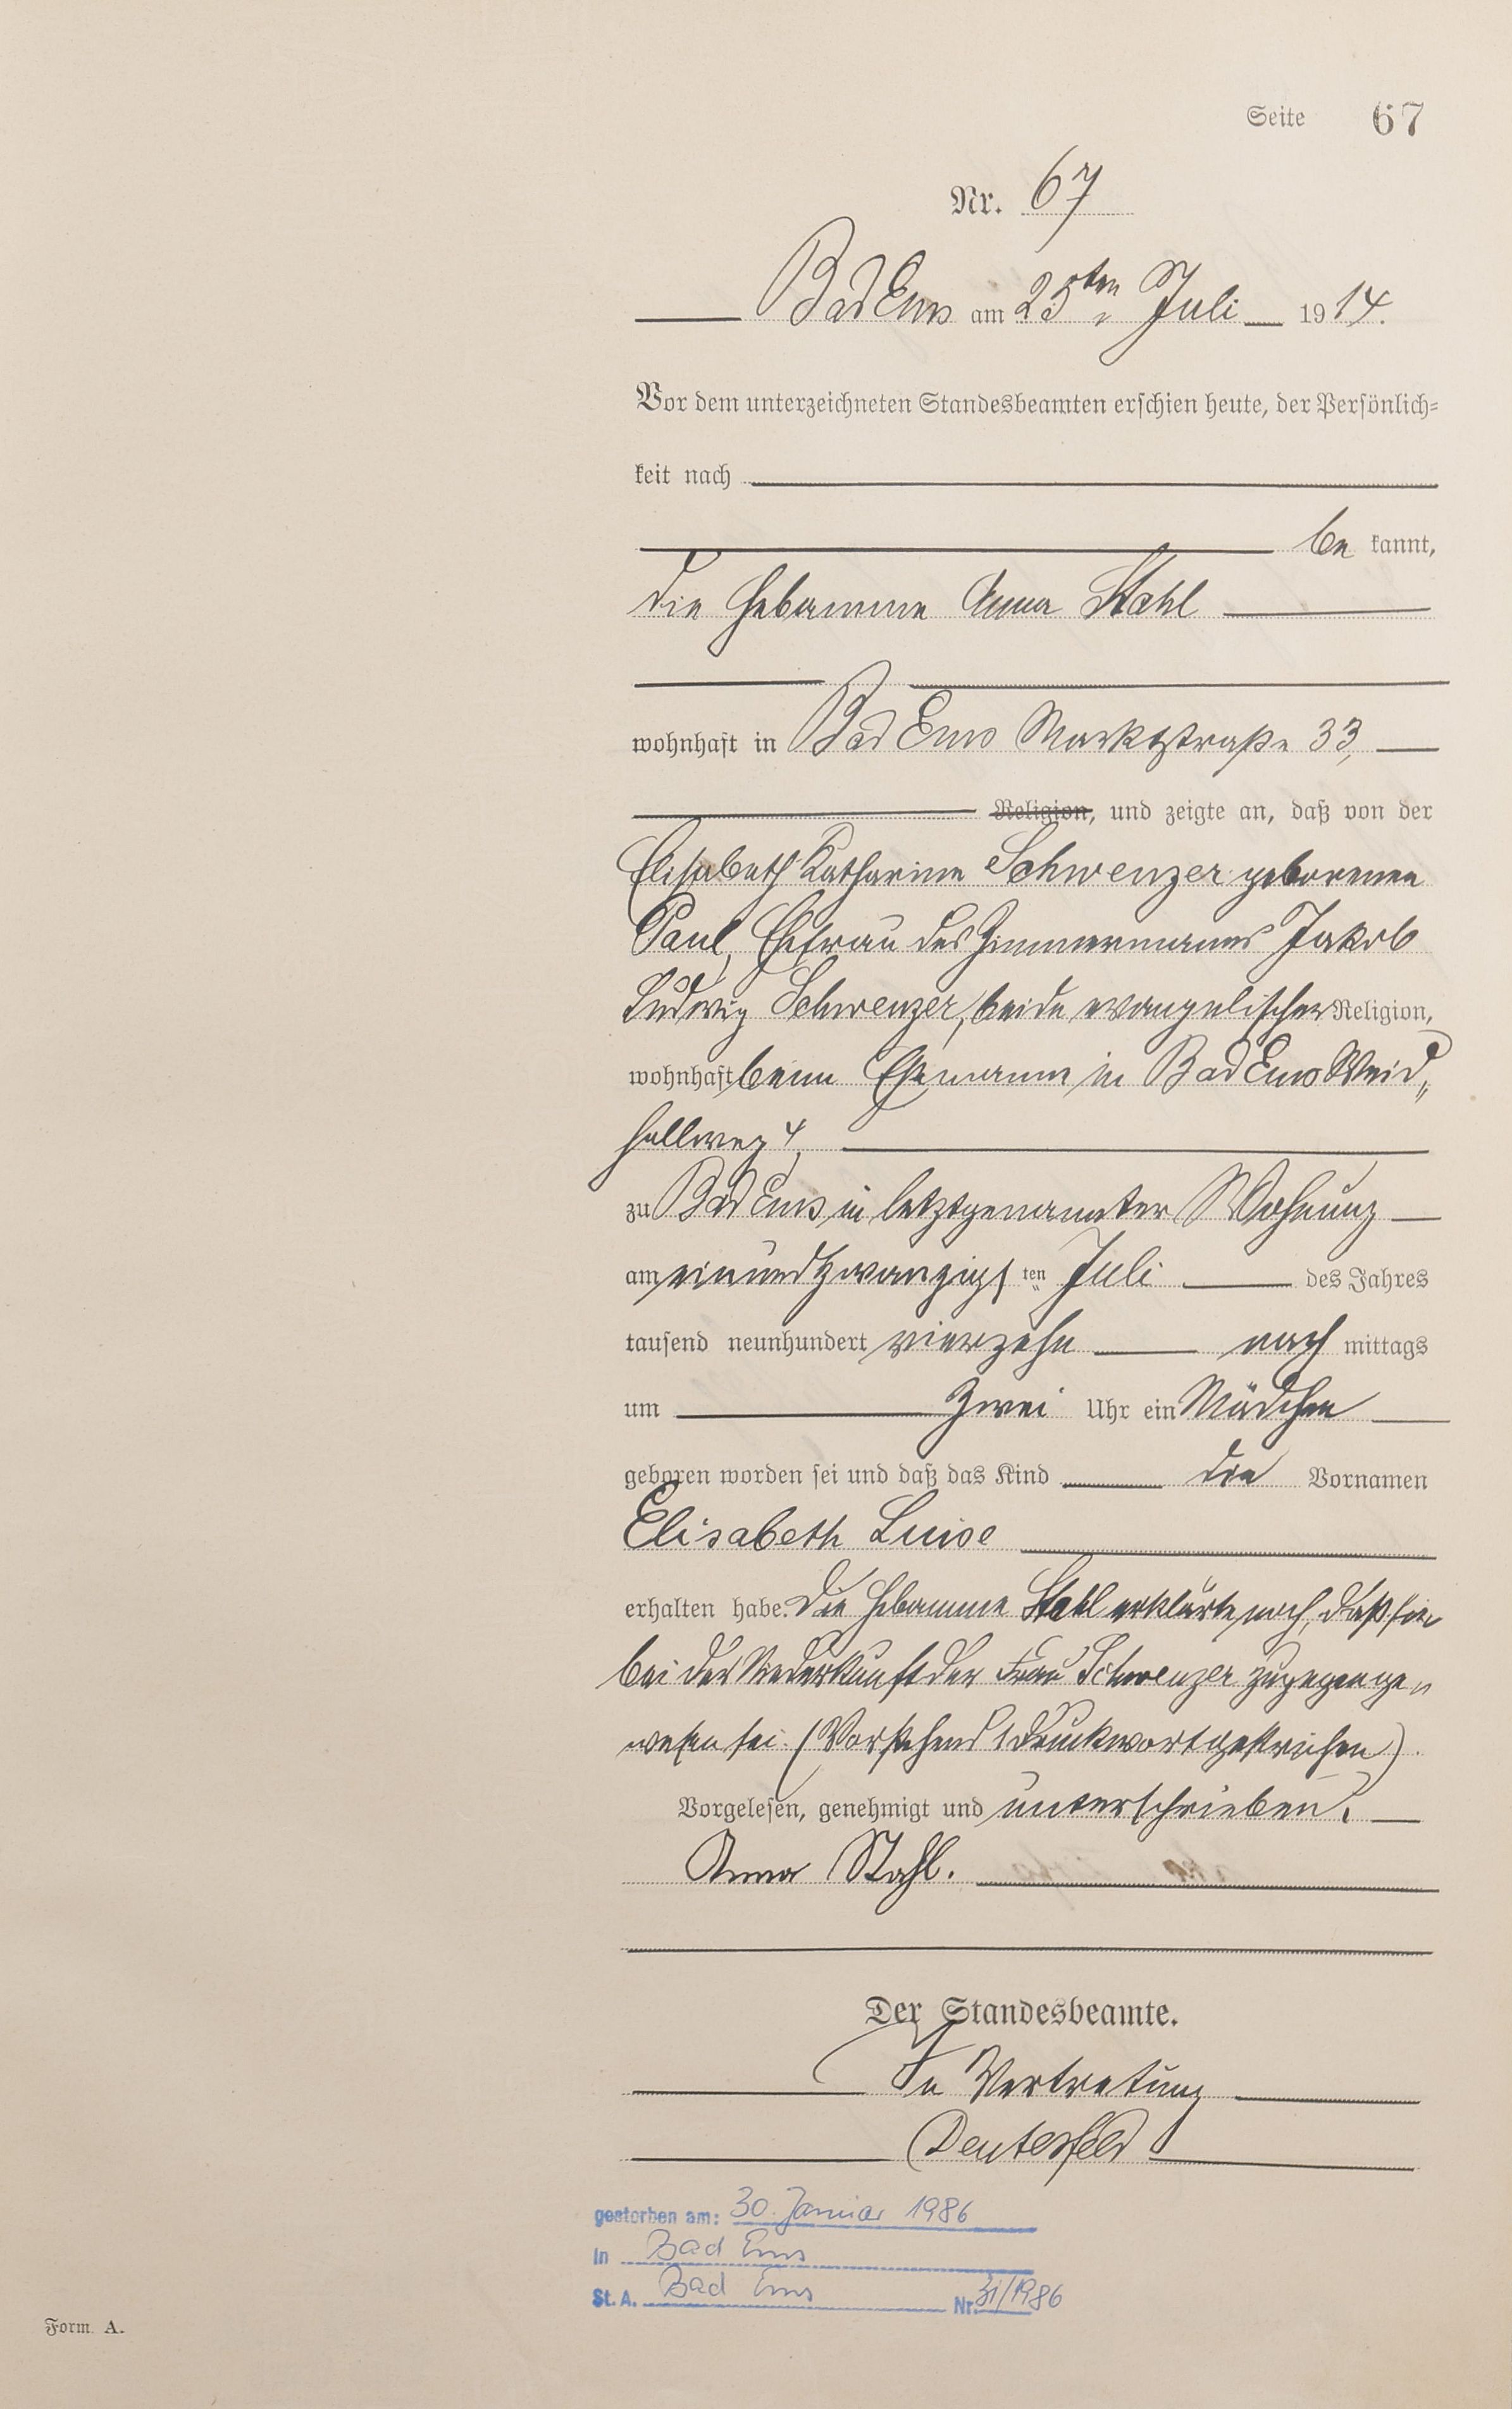 Seite 67
Nr. 67
Bad Ems am 25ten Juli 1914.
Vor dem unterzeichneten Standesbeamten erschien heute, der Persönlich=
keit nach
be kannt,
die Hebamme Anna Stahl
wohnhaft in Bad Ems Marktstraße 33,
Religion, und zeigte an, daß von der
Elisabeth Katharine Schwenzer geborenen
Paul, Ehefrau des Zimmermanns Jakob
Ludwig Schwenzer, beide evangelischer Religion,
wohnhaft beim Ehemann in Bad Ems Weid„
hellweg 4,
zu Bad Ems in letztgenannter Wohnung
am einundzwanzigsten Juli des Jahres
tausend neunhundert vierzehn nach mittags
um zwei Uhr ein Mädchen
geboren worden sei und daß das Kind die Vornamen
Elisabeth Luise
erhalten habe. Die Hebamme Stahl erklärte noch, daß sie
bei der Niederkunft der Frau Schwenzer zugegen ge„
wesen sei. (Vorstehend 1 Druckwort gestrichen).
Vorgelesen, genehmigt und unterschrieben.
Anna Stahl.
Der Standesbeamte.
In Vertretung
gestorben am: 30. Januar 1986
in Bad Ems
St. A. Bad Ems Nr. 31/1986
Form. A.